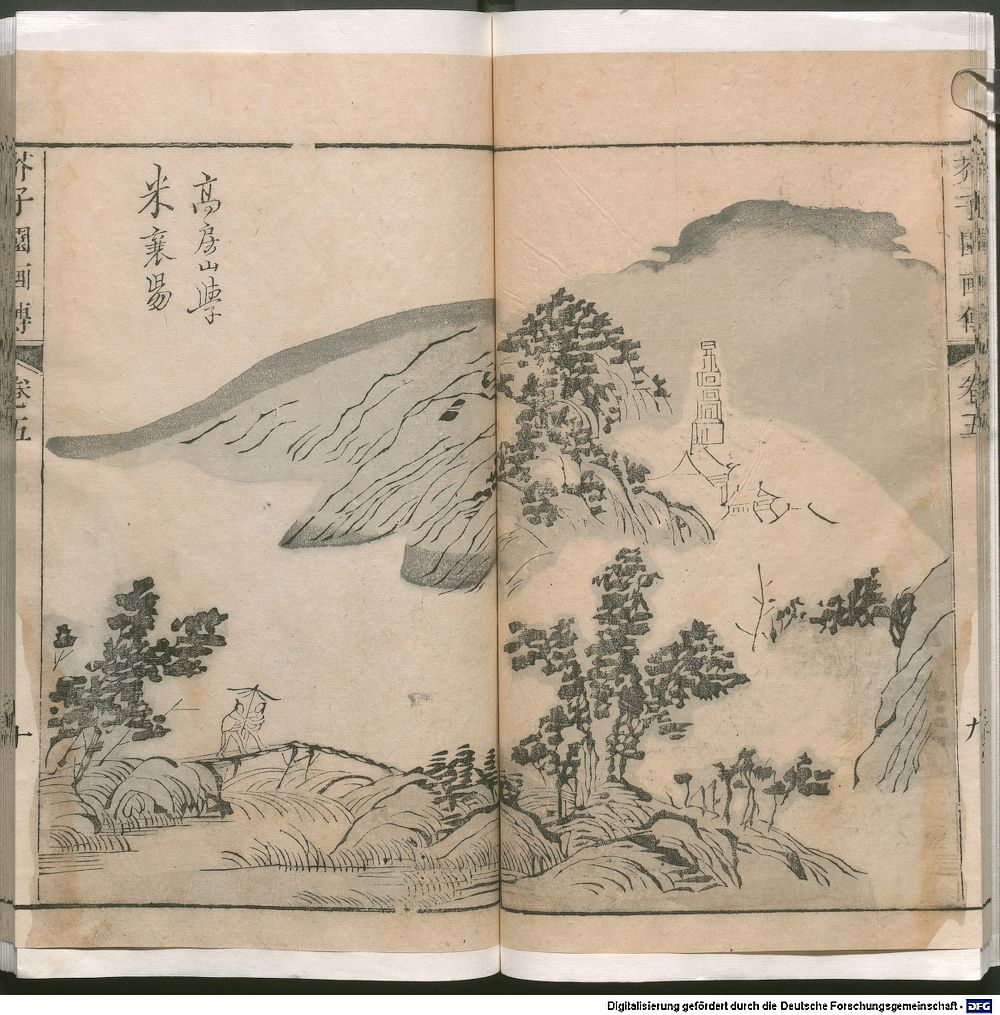 高房山學
米襄陽
芥子園画傳
卷五
九
芥子園画傳
卷五
十
Digitalisierung gefördert durch die Deutsche Forschungsgemeinschaft - DFG